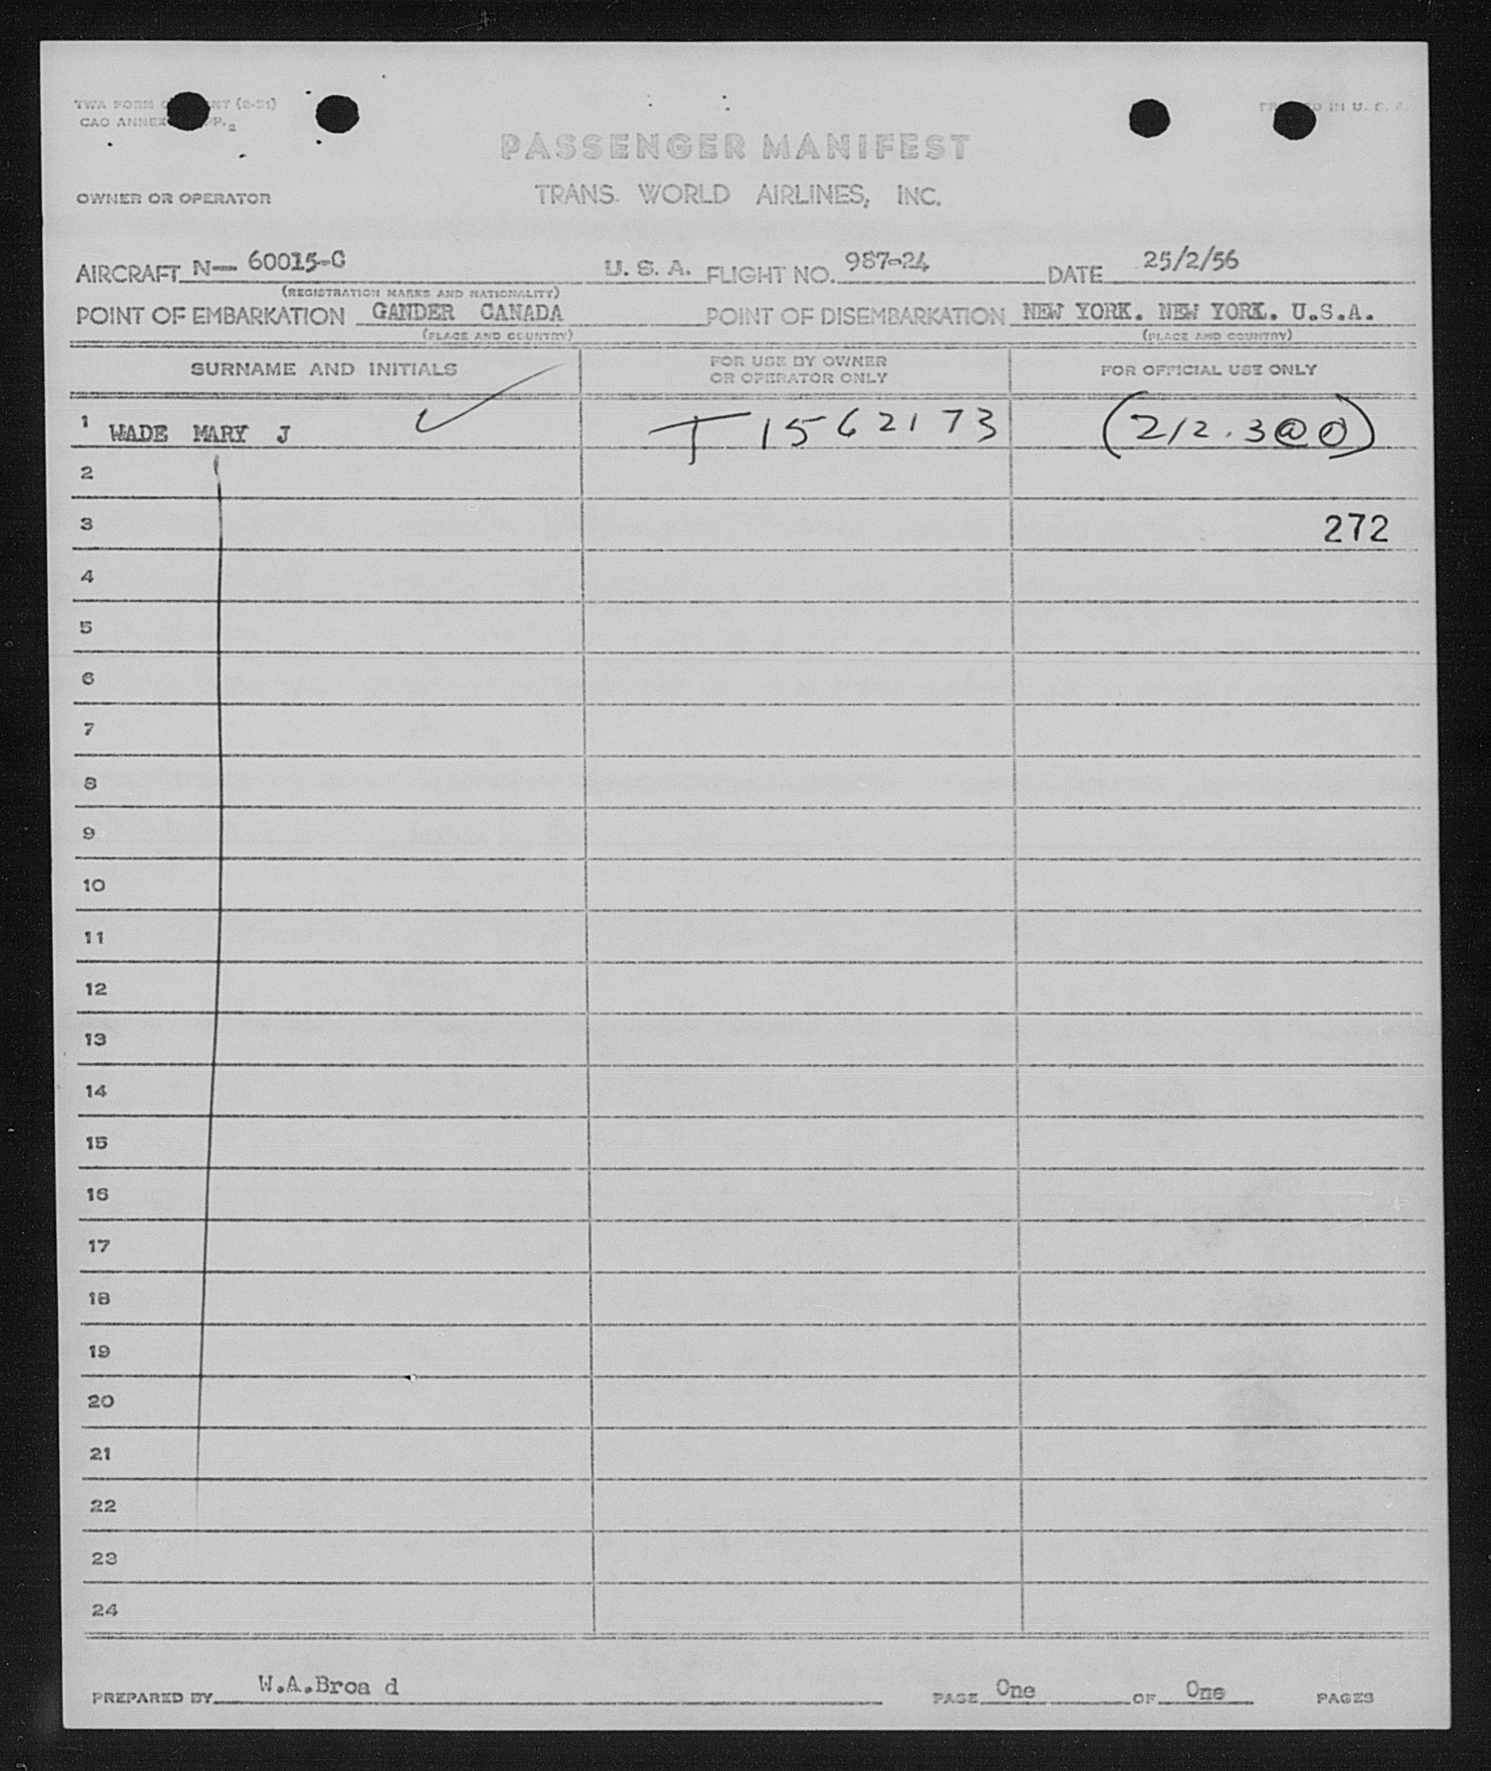 TWA FORM (2-51)
PRINTED IN U. S. A.
CAO ANNEX
PASSENGER MANIFEST
OWNER OR OPERATOR TRANS. WORLD AIRLINES, INC.
AIRCRAFT N— 60015-C U. S. A. FLIGHT NO. 987-24 DATE 25/2/56
(REGISTRATION MARKS AND NATIONALITY)
POINT OF EMBARKATION GANDER CANADA POINT OF DISEMBARKATION NEW YORK. NEW YORK. U.S.A.
(PLACE AND COUNTRY) (PLACE AND COUNTRY)
SURNAME AND INITIALS FOR USE BY OWNER OR OPERATOR ONLY FOR OFFICIAL USE ONLY
1 WADE MARY J T 1562173 (212.3@0)
2
3 272
4
5
6
7
8
9
10
11
12
13
14
15
16
17
18
19
20
21
22
23
24
PREPARED BY W.A.Broa d PAGE One OF One PAGES